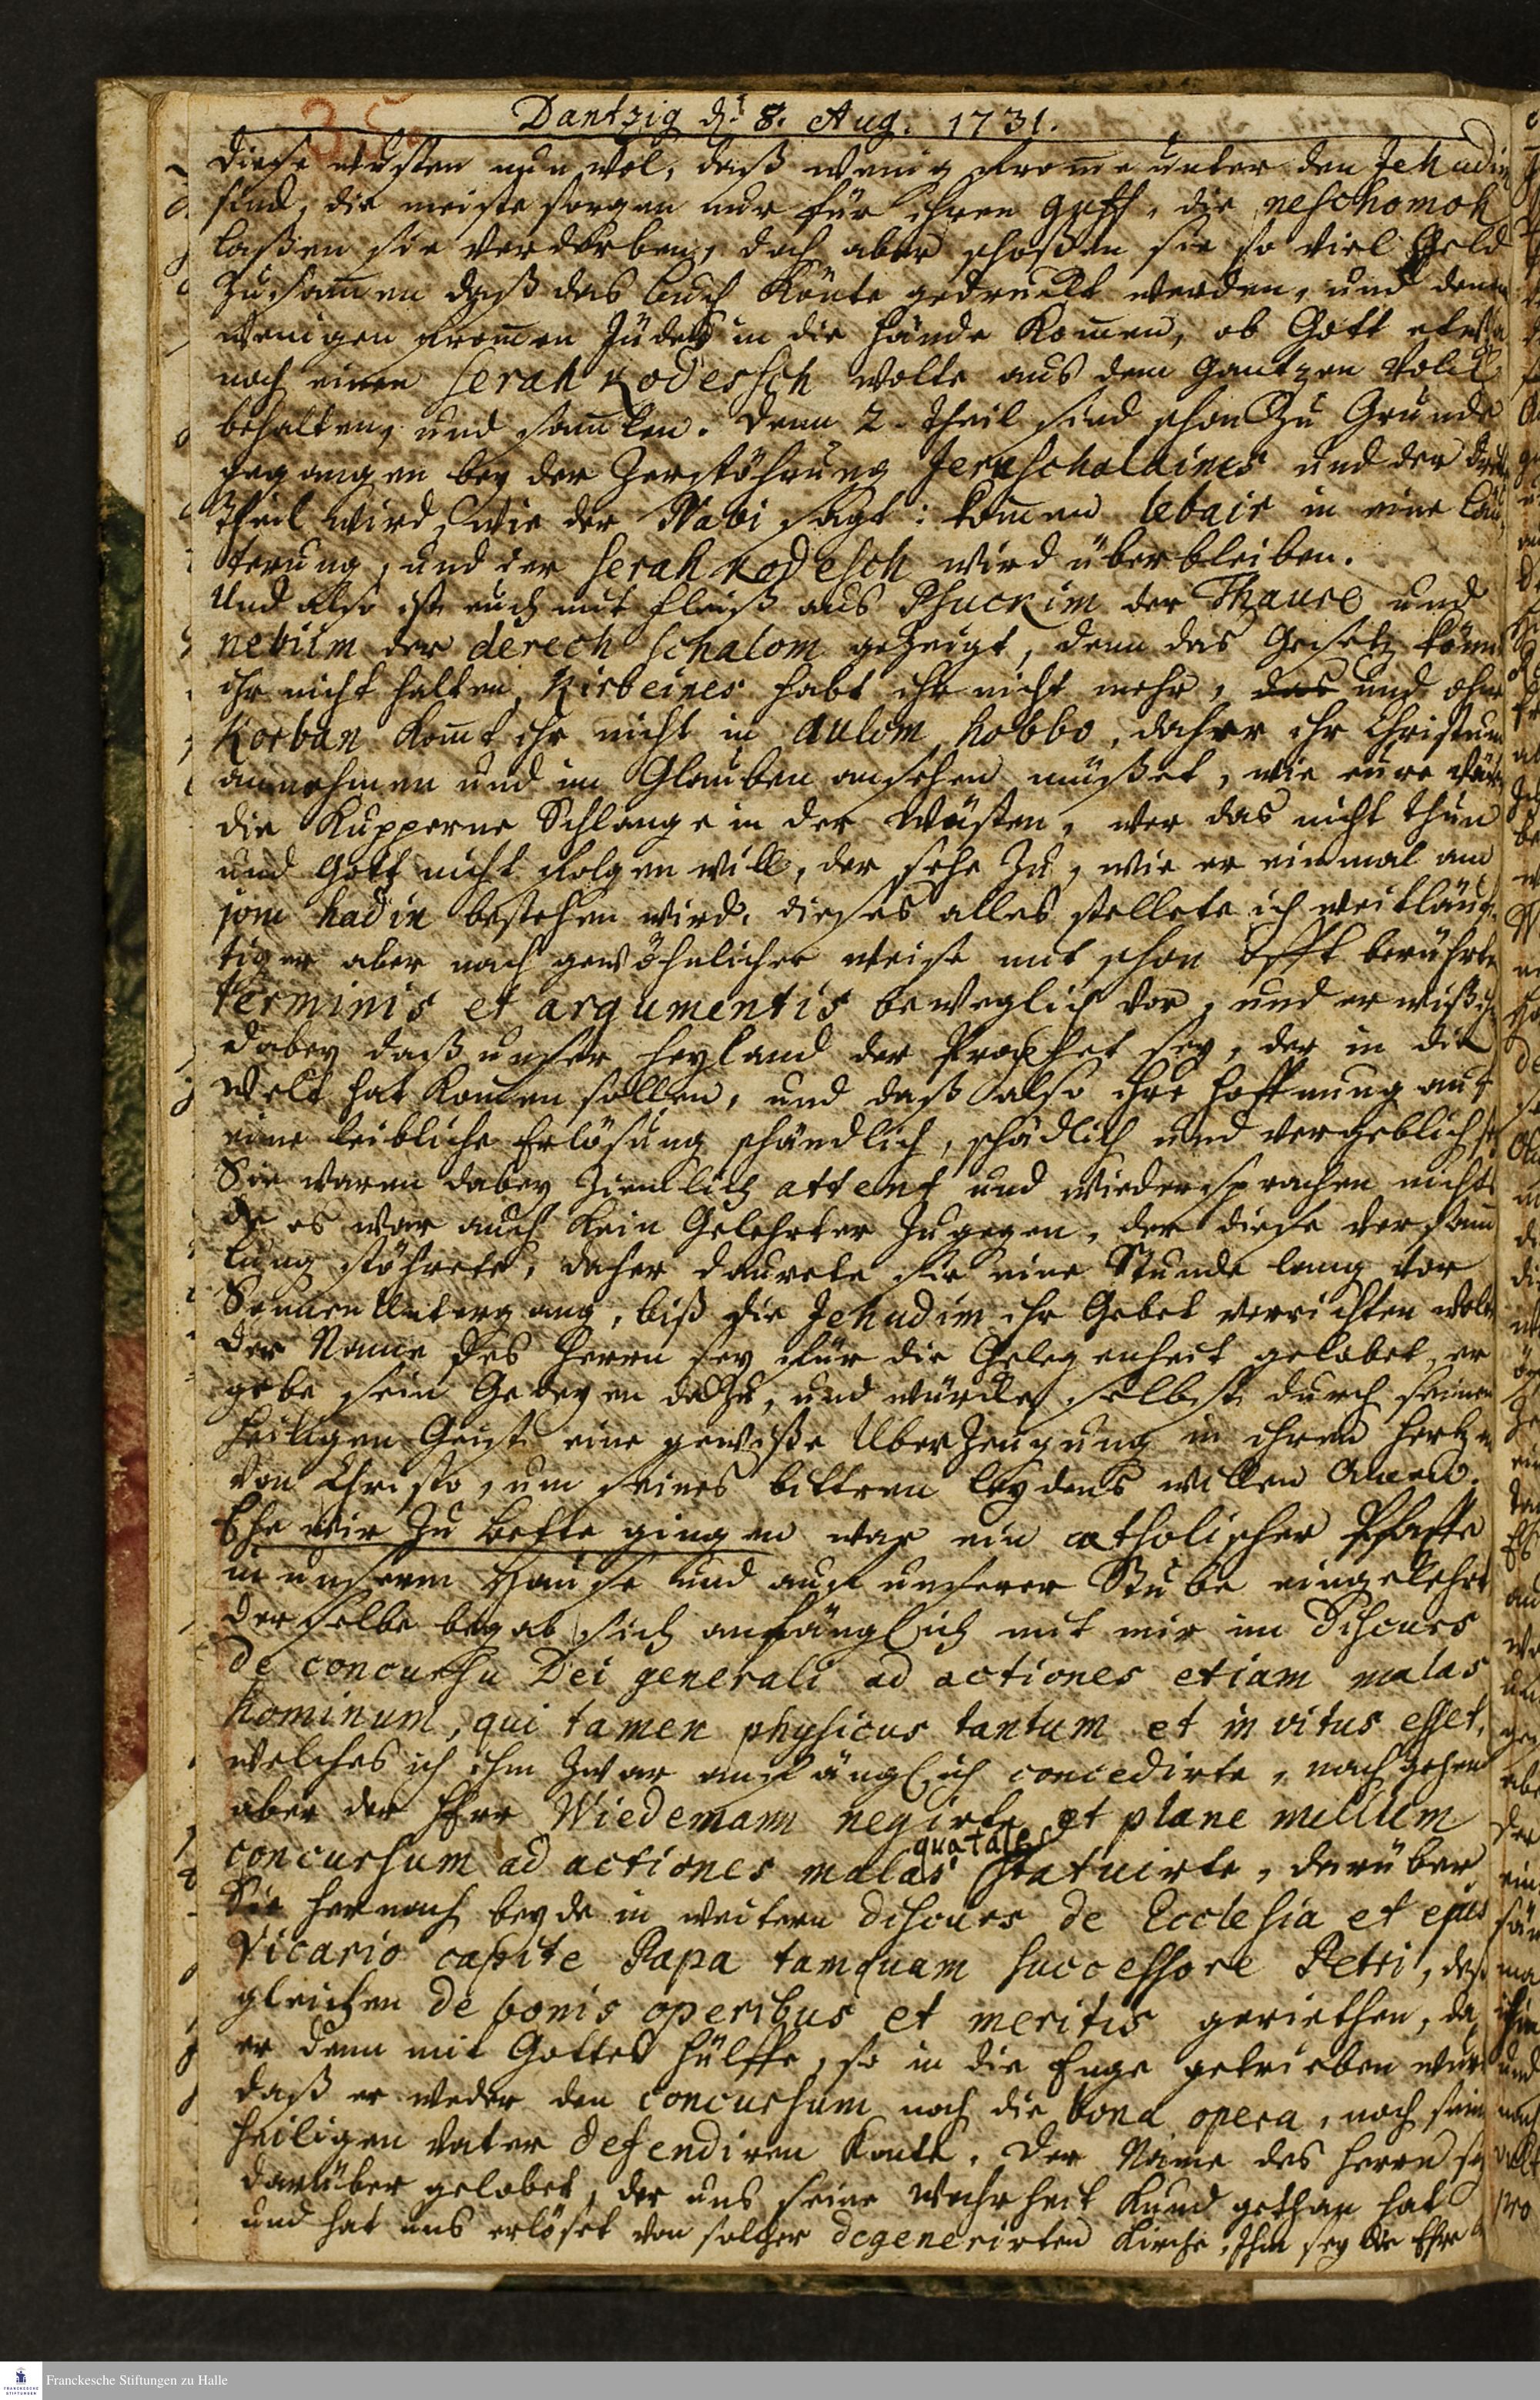 35
Dantzig d. 8. Aug. 1731.
diese wusten nun wol, daß wenig fromme unter den Jehudim
sind, die meiste sorgen nur für ihren guff, die neschomoh
laßen sie verderben, doch aber schoßen sie so viel Geld
zusammen daß das buch könte gedruckt werden, und denen
wenigen frommen Juden in die hände kommen, ob Gott etwa
noch einen serah kodessch wolte aus dem gantzen Volck
behalten, und sammlen. denn 2. theil sind schon zu Grunde
gegangen bey der Zerstöhrung Jeruscholaims und der dritte
Theil wird, wie der Navi sagt: kommen lebair in eine Läu-
terung, und der serah kodesch wird überbleiben.
Und also ist euch mit fleiß aus Psuckim der Thauro und
nebiim der derech schalom gezeigt, denn das Gesetz könnt
ihr nicht halten, Kirbeines habt ihr nicht mehr, das und ohne
Korban kommt ihr nicht in aulom habbo, daher ihr Christum
annehmen und im Glauben ansehen müßet, wie eure Väter
die Kupperne Schlange in der Wüsten, wer das nicht thun
und Gott nicht folgen will, der sehe zu, wie er einmal am
jom hadin bestehen wird. dieses alles stellete ich weitläuf-
tiger aber nach gewöhnlicher weise mit schon offt berührten
terminis et argumentis beweglich vor, und erwiß ich
dabey daß unser Heyland der Prophet sey, der in die
Welt hat kommen sollen, und daß also ihre hoffnung auf
eine leibliche Erlösung schändlich, schädlich und vergeblich sey
Sie waren dabey ziemlich attent und wiedersprachen nichts
es war auch kein Gelehrter zugegen, der diese versamm
lung stöhrete, daher daurete sie eine Stunde lang vor
Sonnen Untergang, biß die Jehudim ihr Gebet verrichten wolten
der Name des Herrn sey für die Gelegenheit gelobet, er
gebe sein Gedeyen dazu, und würcke selbst durch seinen
heiligen Geist eine gewiße Uberzeugung in ihren hertzen
von Christo, um seines bittren leydens willen Amen.
Ehe wir zu bette gingen war ein catholischer Pfaffe
in unserm Hause und auf unserer Stube eingekehrt
derselbe begab sich anfänglich mit mir im Discurs
de concursu Dei generali ad actiones etiam malas
hominum, qui tamen physicus tantum et invitus esset,
welches ich ihm zwar anfänglich concedirte, nachgehend
aber der Herr Wiedemann negirte et plane nullum
concursum ad actiones malas qua tales statuirte, darüber
Sie hernach beyde in weitern discurs de Ecclesia et ejus
Vicario capite Papa tamquam successore Petri, deß
gleichen de bonis operibus et meritis geriethen, da
er denn mit Gottes hülffe, so in die Enge getrieben wurde
daß er weder den concursum noch die bona opera, noch seinen
heiligen Vater defendiren konte. der Name des Herrn sey
darüber gelobet, der uns seine Wahrheit kund gethan hat
und hat uns erlöset von solcher degenerirten Kirche, Ihm sey die Ehre
Franckesche Stiftungen zu Halle